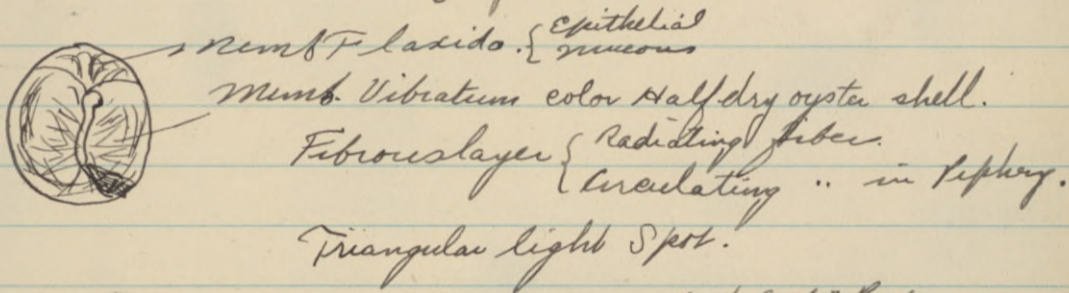 Memb Flaxida. { Epithelial
mucous
Memb. Vibratum color Half dry oyster shell.
Fibrous layer { Radiating fiber.
Circulating " in Pephery.
Triangular light Spot.